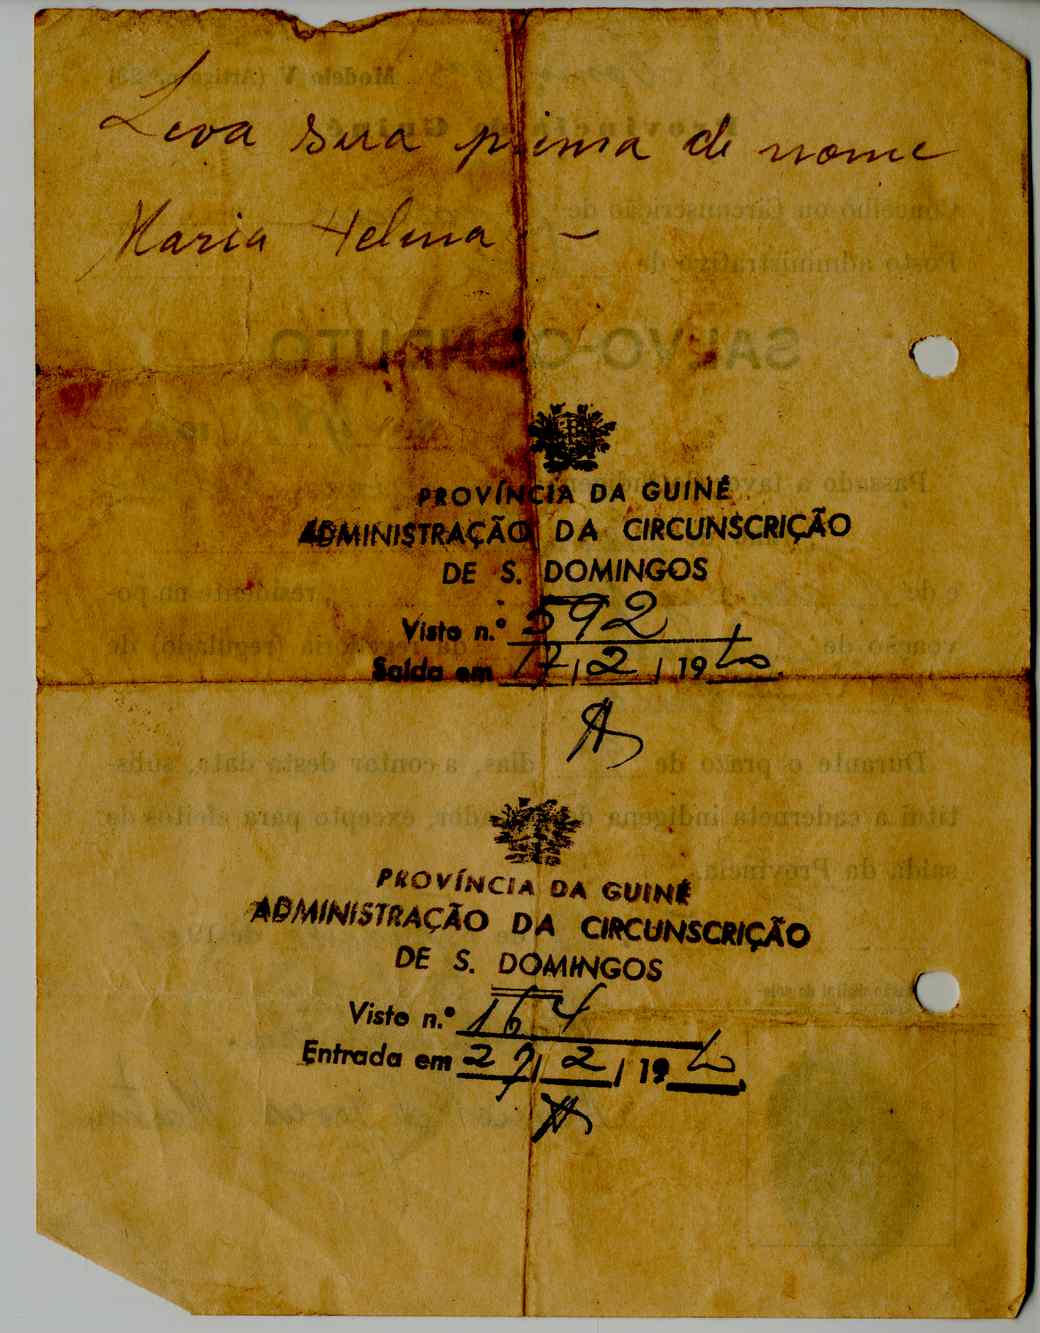 Leva sua prima de nome
Maria Helena -
PROVÍNCIA DA GUINÉ
ADMINISTRAÇÃO DA CIRCUNSCRIÇÃO
DE S. DOMINGOS
Visto n.º 592
Saída em 17/2/1960
PROVÍNCIA DA GUINÉ
ADMINISTRAÇÃO DA CIRCUNSCRIÇÃO
DE S. DOMINGOS
Visto n.º 164
Entrada em 29/2/1960